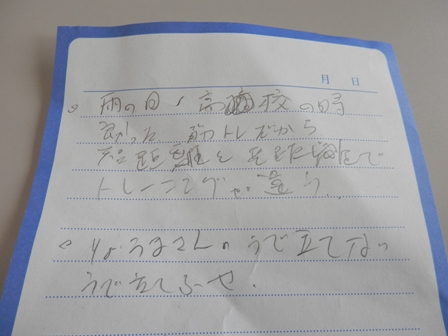 月 日
雨の日、高校の時
筋トレだから
短距離と長距離で
トレーニングが違う…
りょうまさんのうで立て
うで立てふせ.